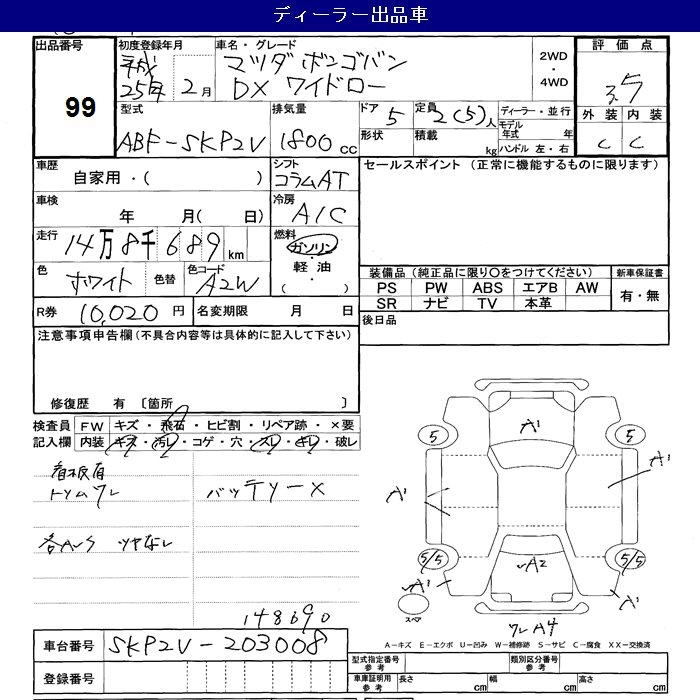 ディーラー出品車
出品番号 99
初度登録年月 平成25年 2月
車名・グレード マツダ ボンゴバン DX ワイドロー
2WD ・ 4WD
評価点 3.5
外装 C 内装 C
型式 ABF-SKP2V
排気量 1800 cc
ドア 5
定員 2(5)人
ディーラー・並行
形状
積載 kg
モデル年式 年
ハンドル 左・右
車歴 自家用・( )
シフト コラムAT
セールスポイント (正常に機能するものに限ります)
車検 年 月( 日)
冷房 A/C
走行 14万8千689km
燃料 ガソリン・軽油・( )
色 ホワイト 色替 色コード A2W
装備品(純正品に限り○をつけてください)
新車保証書 有・無
PS PW ABS エアB AW
SR ナビ TV 本革
R券 10,020円
名変期限 月 日
後日品
注意事項申告欄(不具合内容等は具体的に記入して下さい)
修復歴 有 〔箇所 〕
検査員記入欄
FW キズ・飛石・ヒビ割・リペア跡・×要
内装 キズ・汚レ・コゲ・穴・スレ・キレ・破レ
看板有
トリムワレ
バッテリー×
ツヤなし
148690
A'
5 5
A' A'
5/5 5/5
A2
A' A'
スペア
ワレ A4
A-キズ E-エクボ U-凹み W-補修跡 S-サビ C-腐食 XX-交換済
車台番号 SKP2V-203008
登録番号
型式指定番号 参考
類別区分番号 参考
車庫証明用 参考 長さ cm 幅 cm 高さ cm